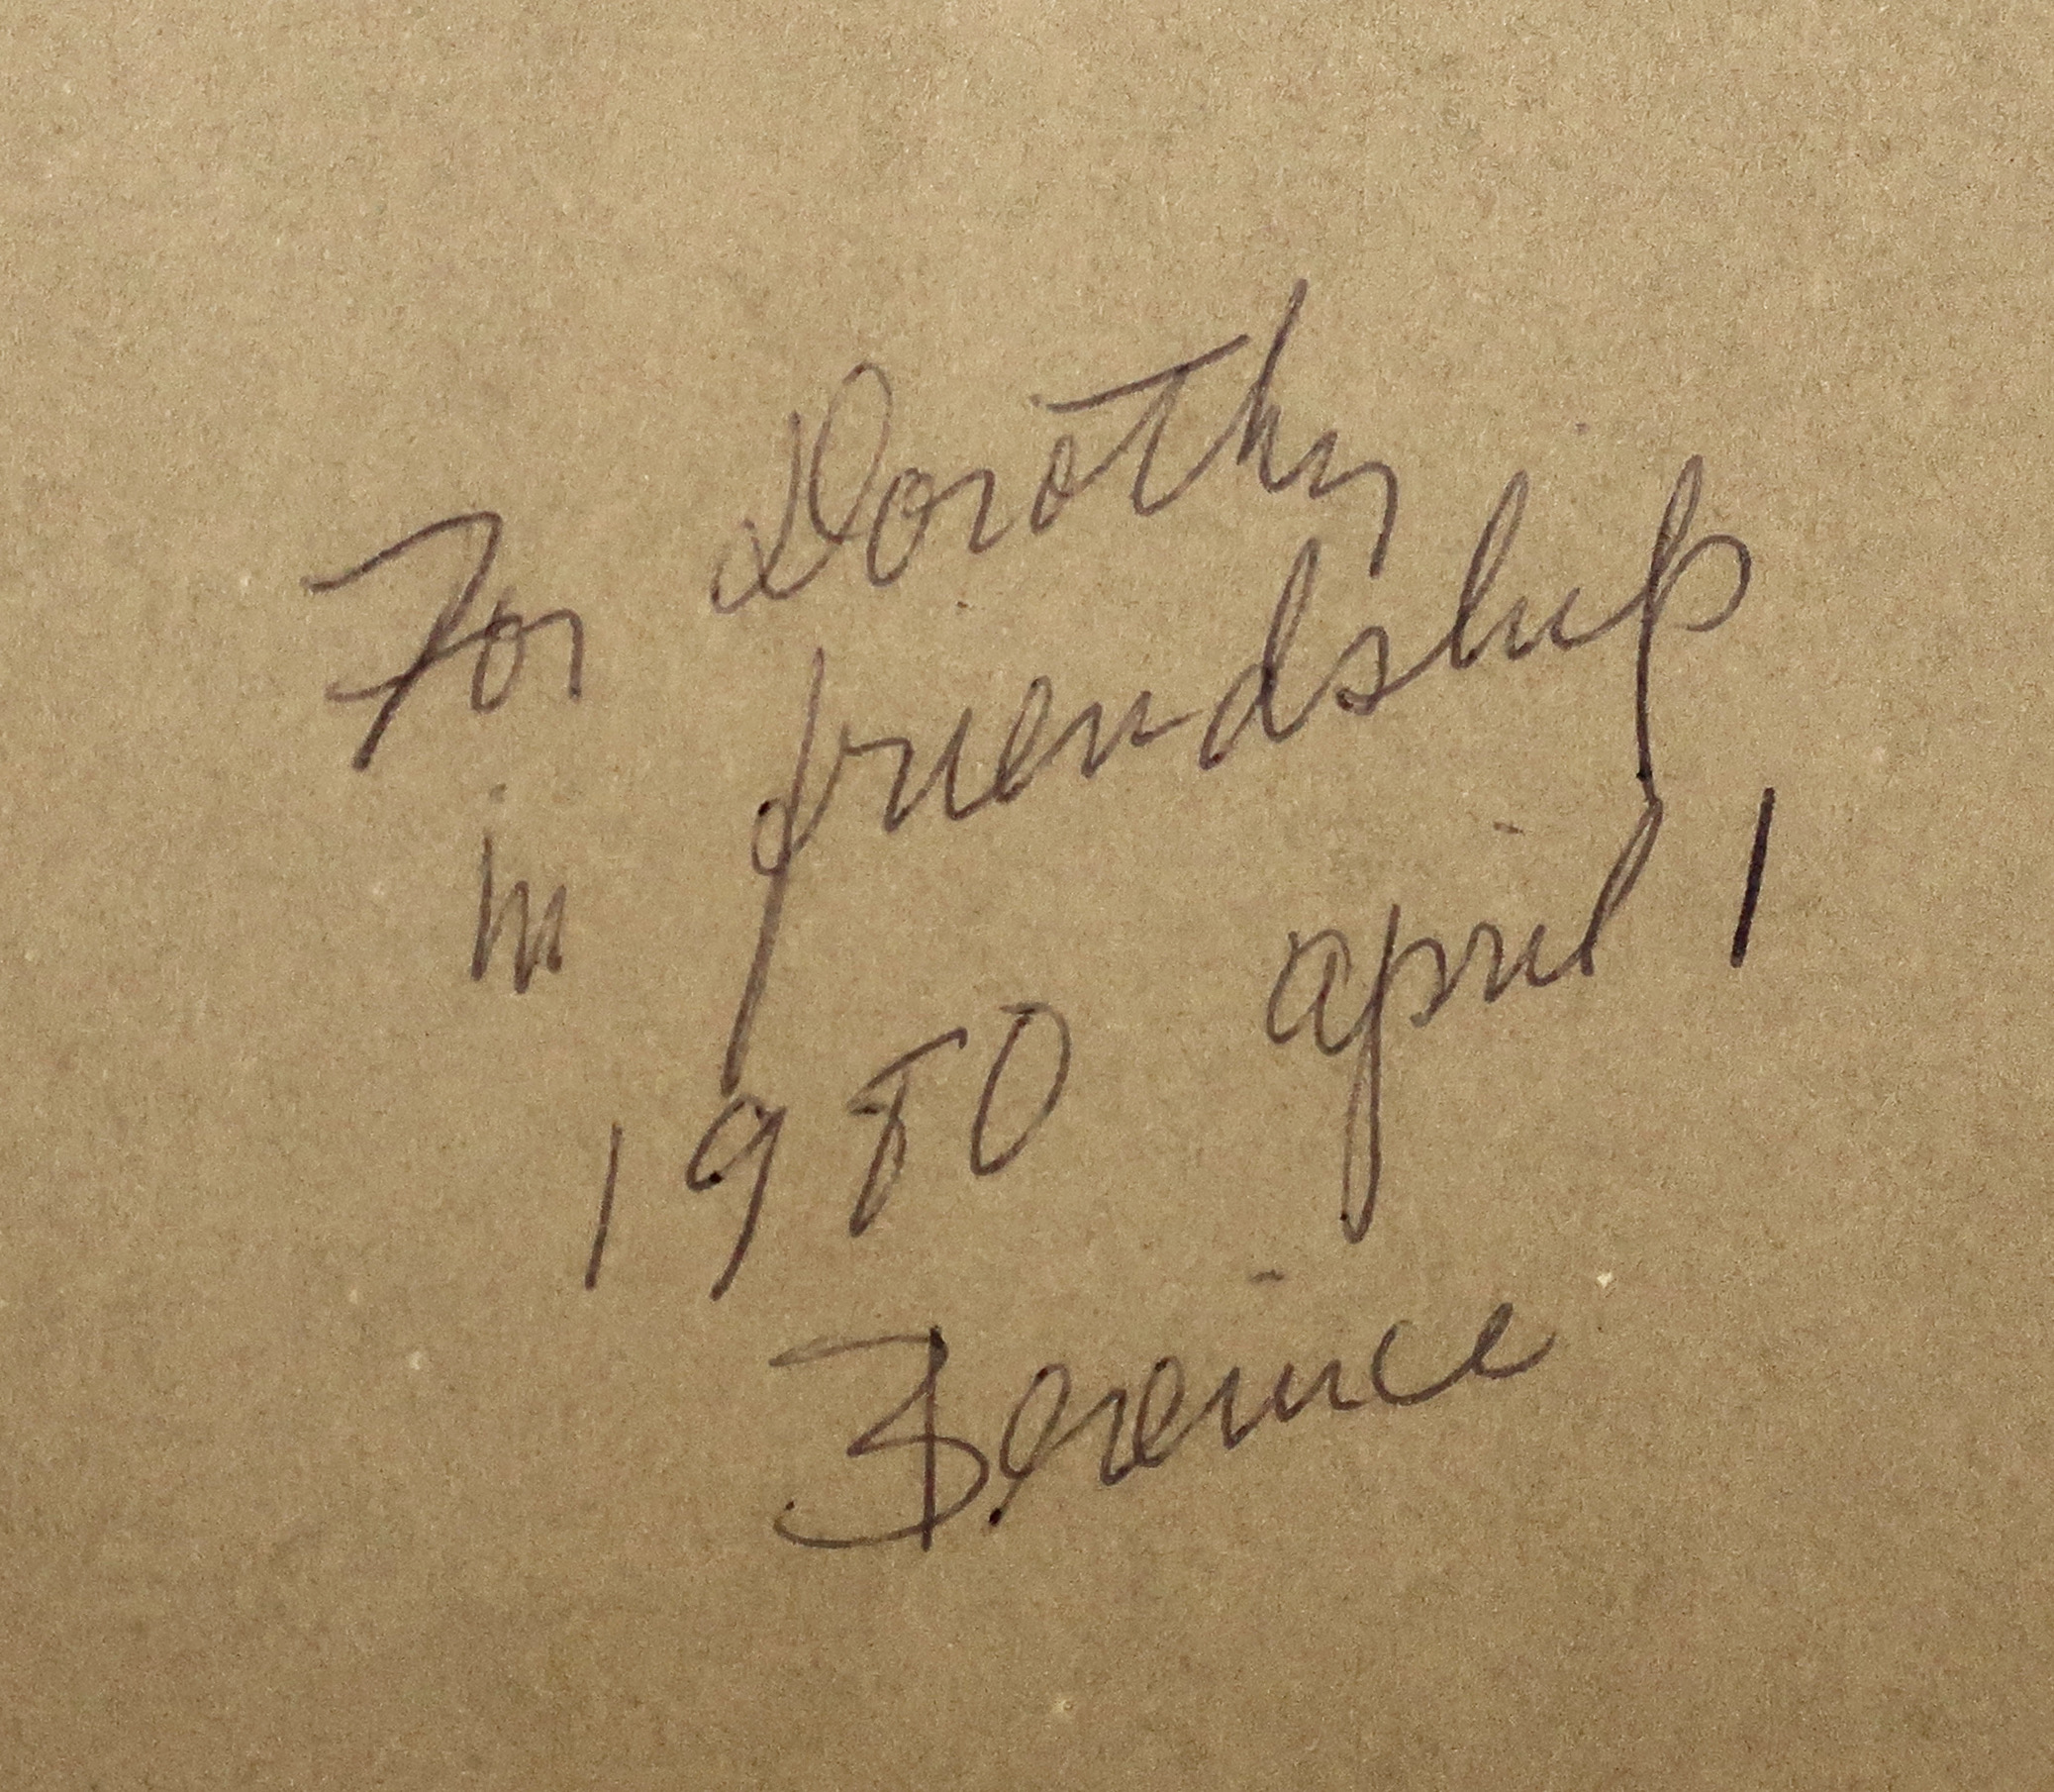 For Dorothy
in friendship
1980 april 1
Berenice